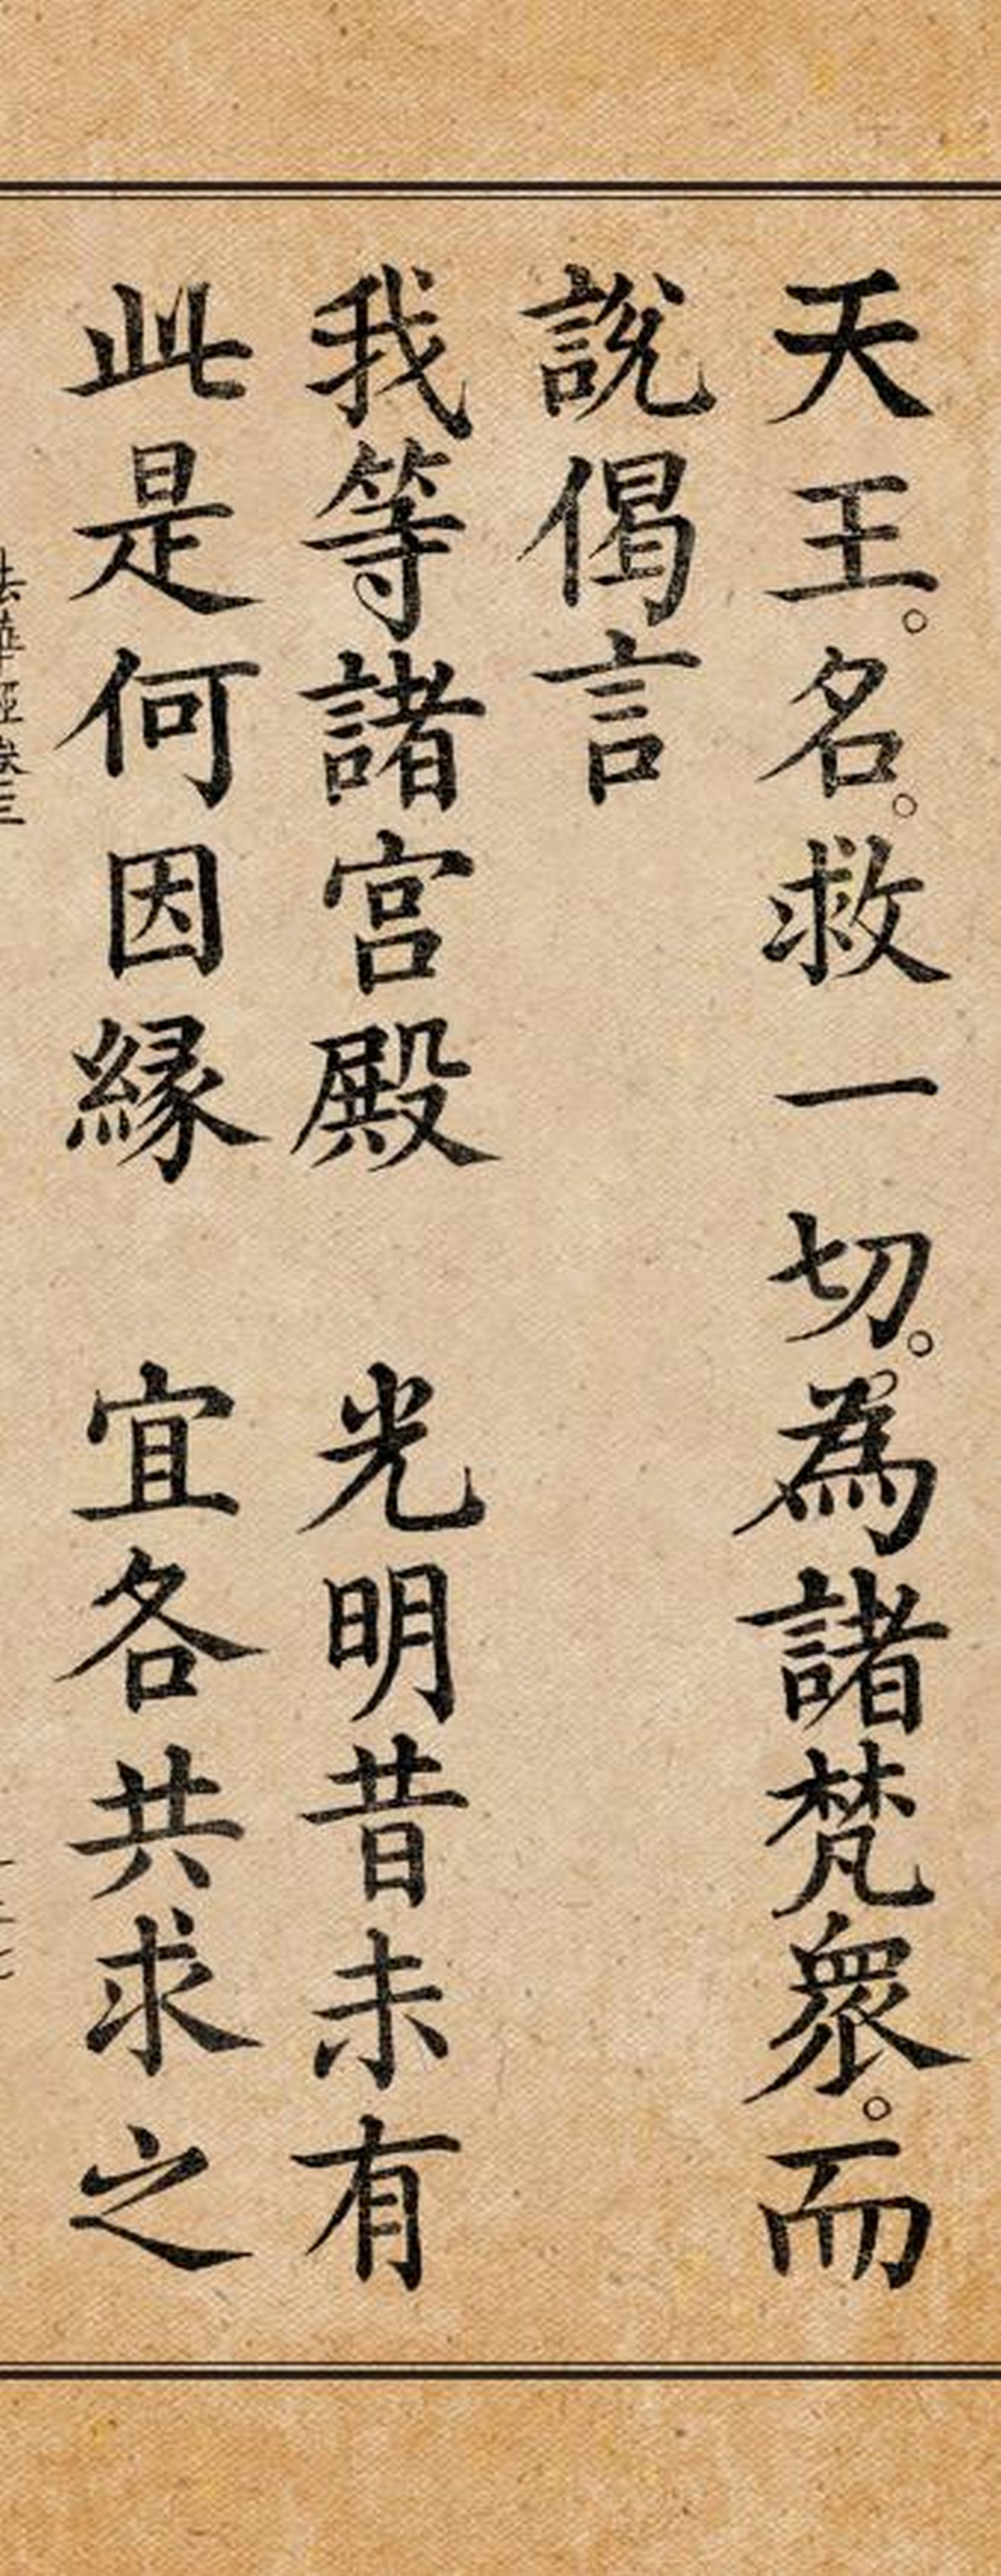 天王。名。救一切。為諸梵眾。而
說偈言
我等諸宮殿　光明昔未有
此是何因緣　宜各共求之
法華經卷三